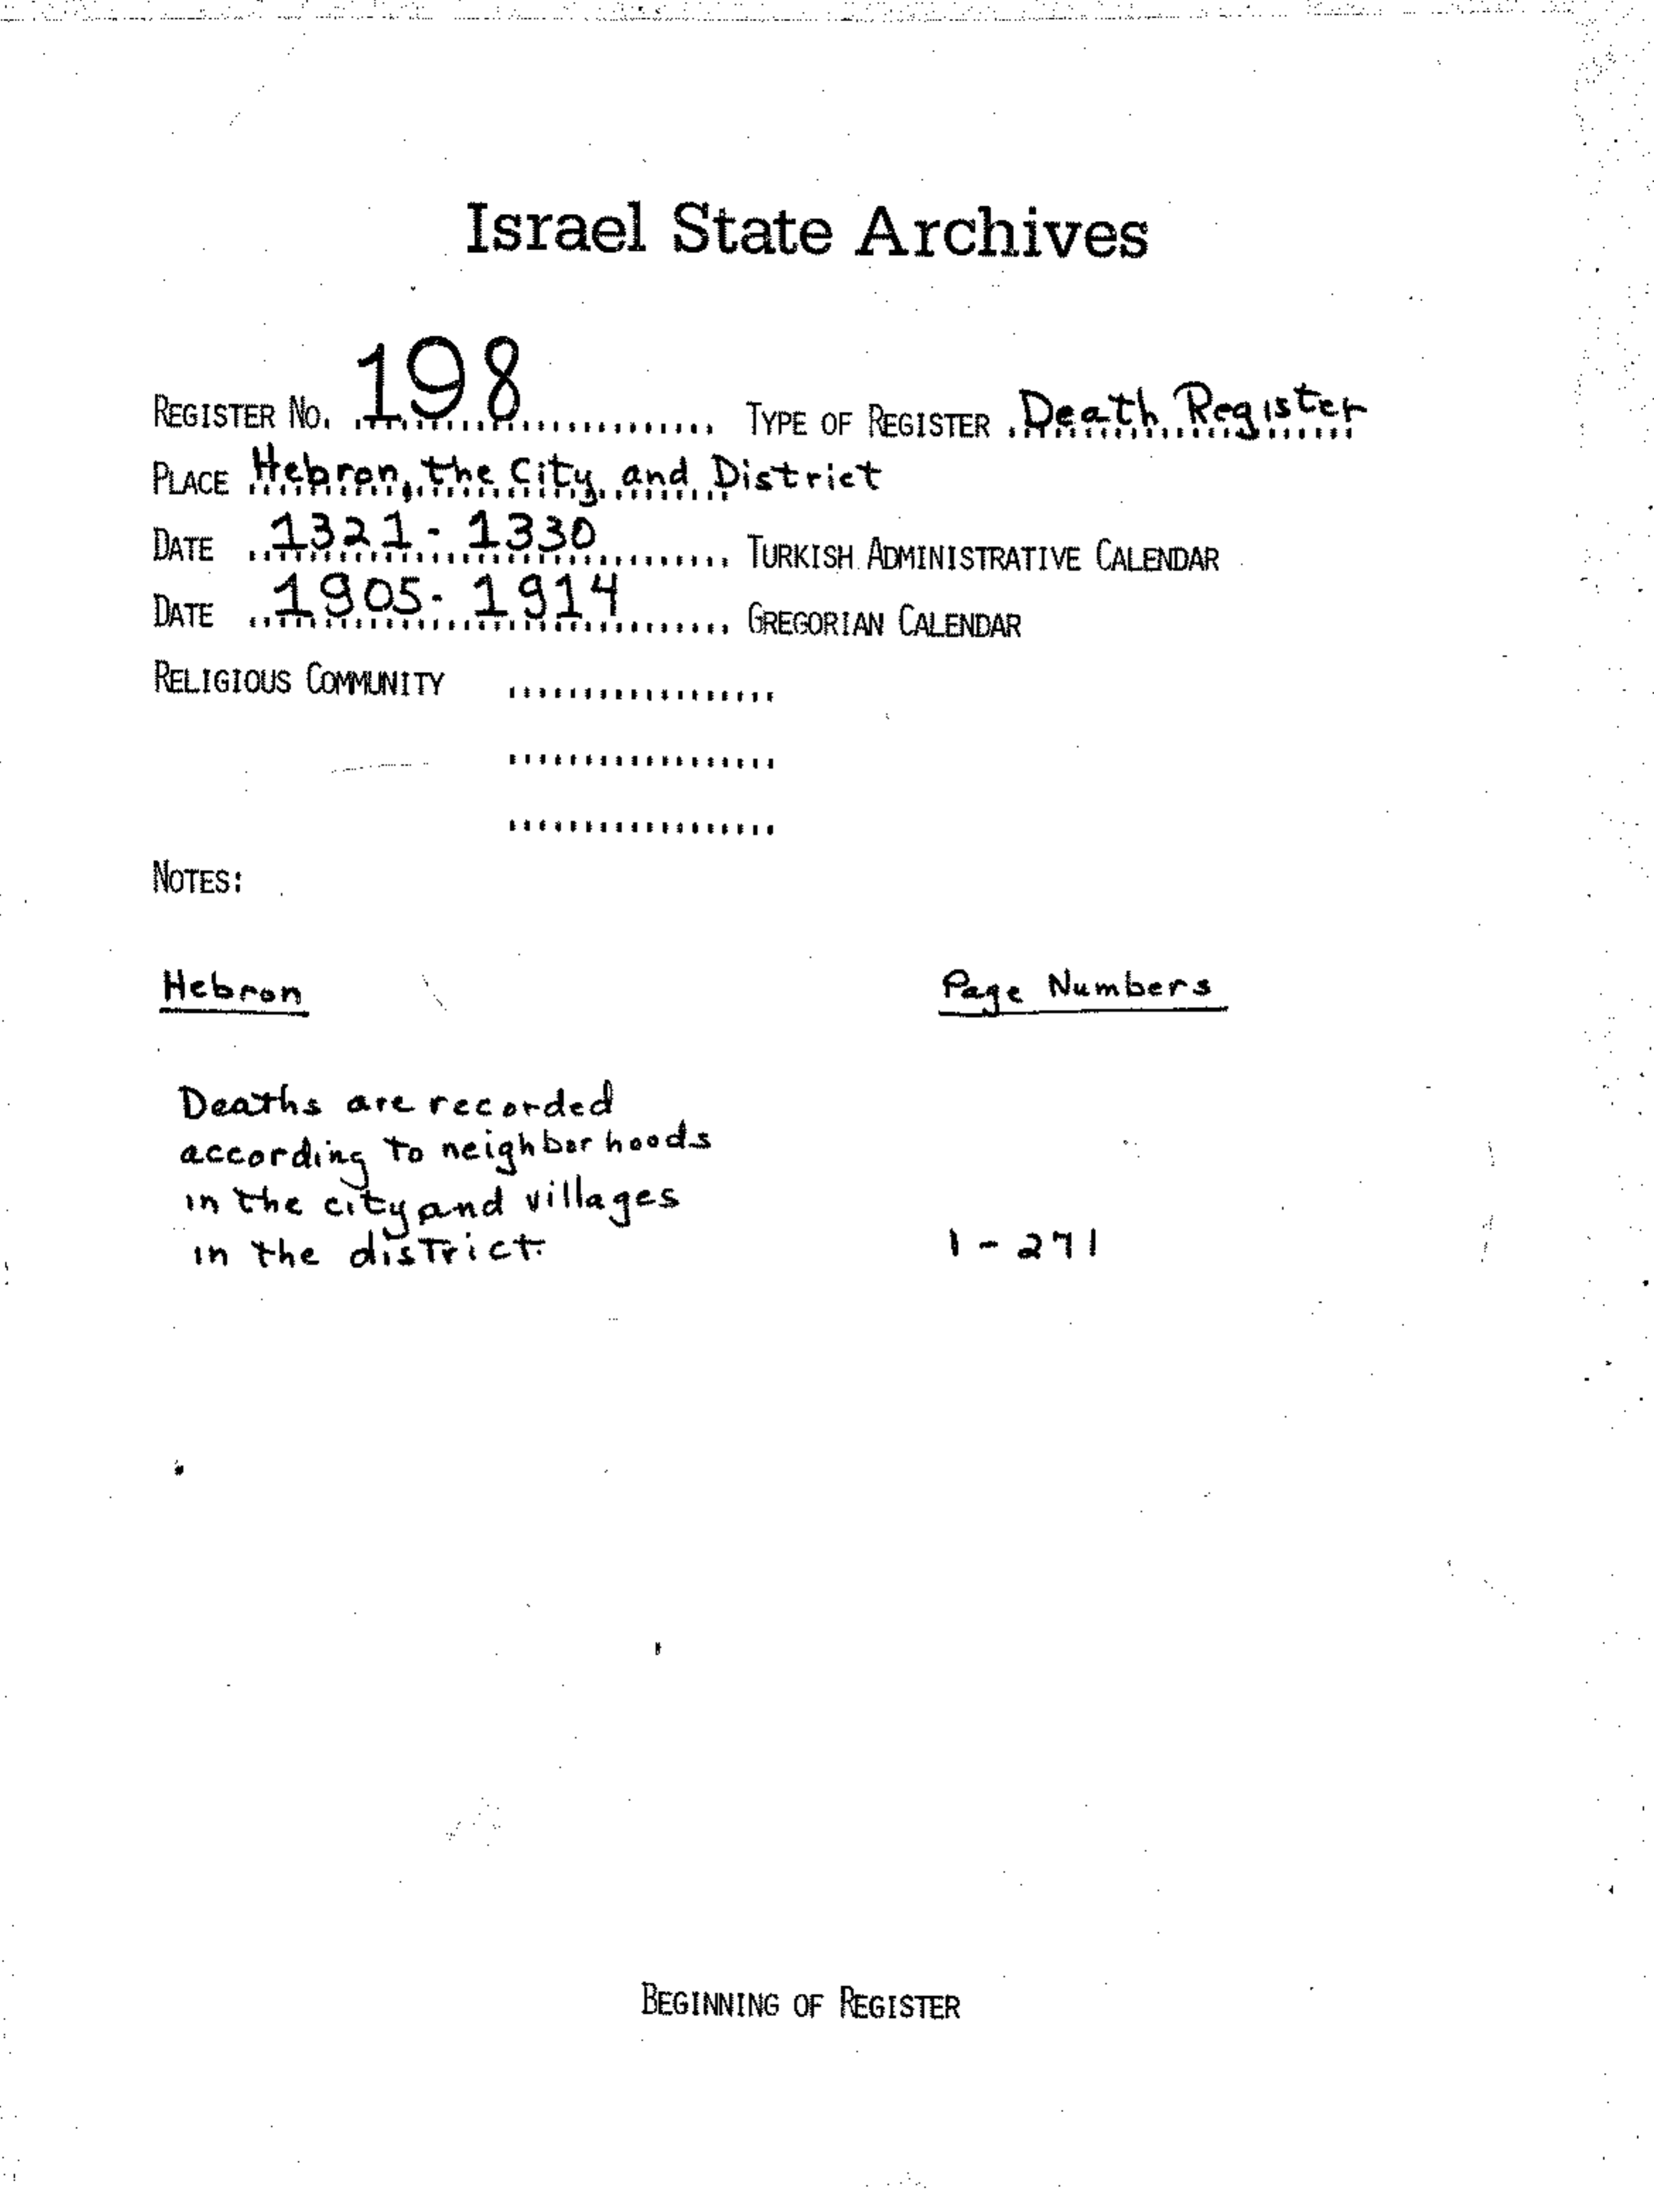 Israel State Archives
REGISTER NO. 198 TYPE OF REGISTER Death Register
PLACE Hebron, the City and District
DATE 1321 - 1330 TURKISH ADMINISTRATIVE CALENDAR
DATE 1905 - 1914 GREGORIAN CALENDAR
RELIGIOUS COMMUNITY
NOTES:
Hebron Page Numbers
Deaths are recorded
according to neighborhoods
in the city and villages
in the district. 1 - 271
BEGINNING OF REGISTER